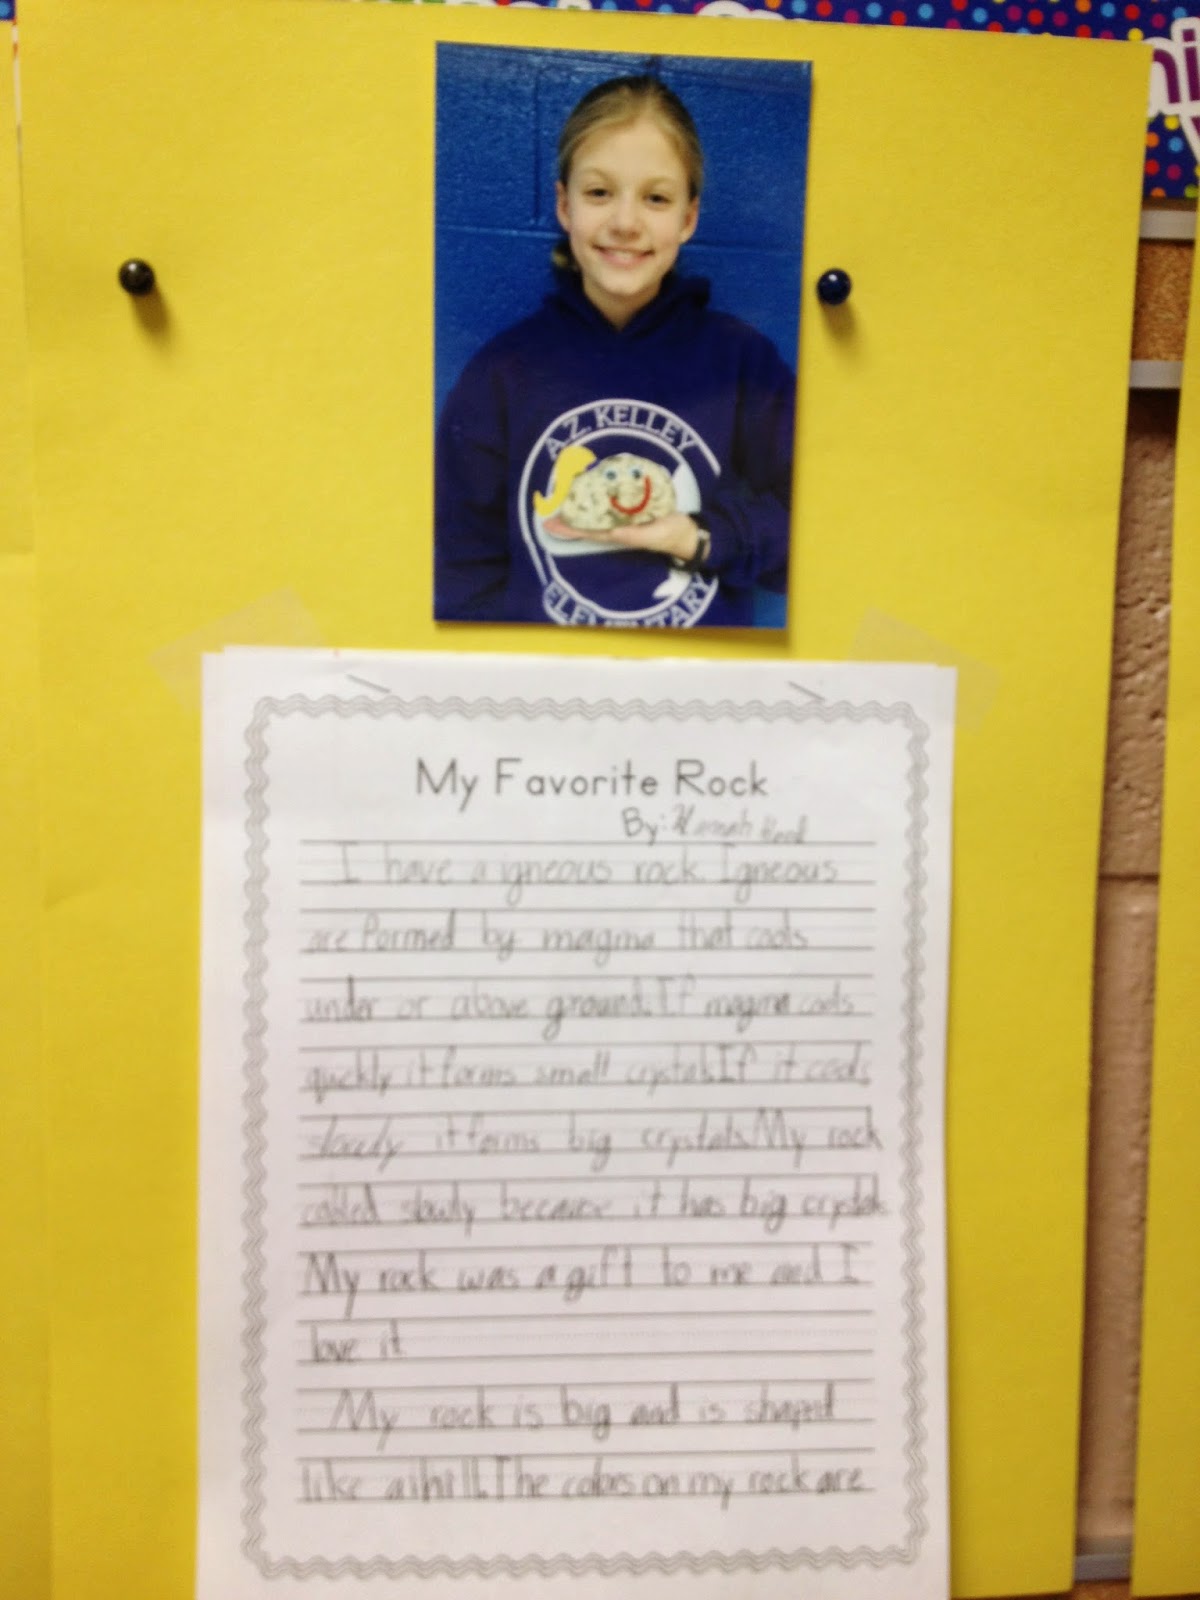 A.Z. KELLEY
ELEMENTARY
My Favorite Rock
By: Hannah
I have a igneous rock. Igneous
are formed by magma that cools
under or above ground. If magma cools
quickly it forms small crystals. If it cools
slowly it forms big crystals. My rock
cooled slowly because it has big crystals.
My rock was a gift to me and I
love it.
My rock is big and is shaped
like a hill. The colors on my rock are